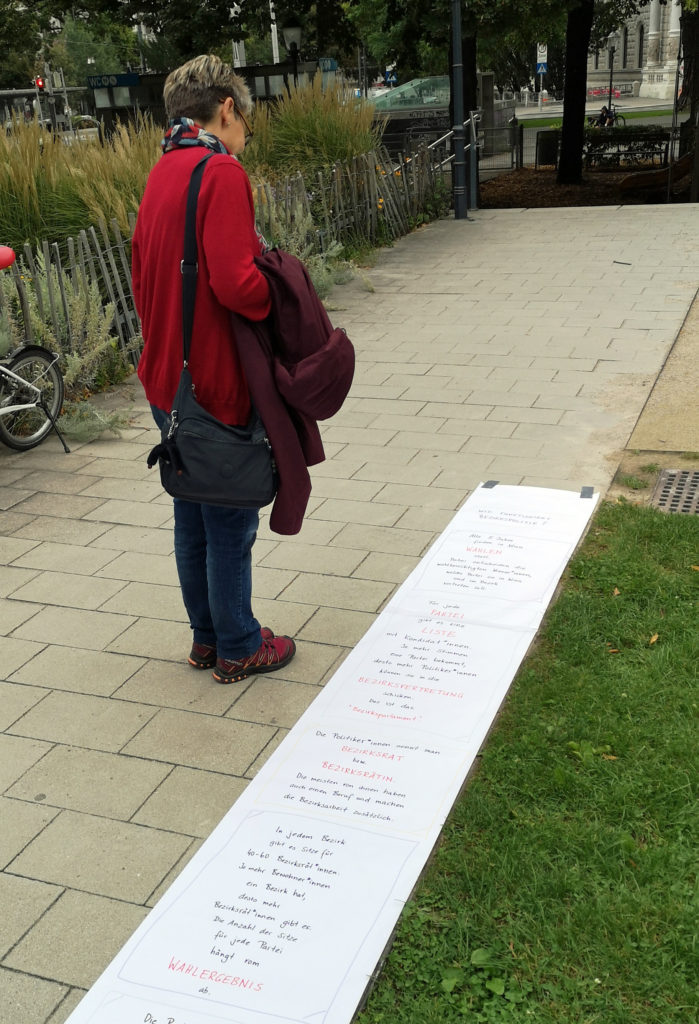 WC
WIE FUNKTIONIERT
BEZIRKSPOLITIK?
Alle 5 Jahre
finden in Wien
WAHLEN
statt.
Dabei entscheiden die
wahlberechtigten Wiener*innen,
welche Partei sie in Wien
und im Bezirk
vertreten soll.
Für jede
PARTEI
gibt es eine
LISTE
mit Kandidat*innen
Je mehr Stimmen
eine Partei bekommt,
desto mehr Politiker*innen
können sie in die
BEZIRKSVERTRETUNG
schicken.
Das ist das
"Bezirksparlament"
Die Politiker*innen nennt man
BEZIRKSRAT
bzw.
BEZIRKSRÄTIN.
Die meisten von ihnen haben
auch einen Beruf und machen
die Bezirksarbeit zusätzlich.
In jedem Bezirk
gibt es Sitze für
40-60 Bezirksrät*innen.
Je mehr Bewohner*innen
ein Bezirk hat,
desto mehr
Bezirksrät*innen gibt es.
Die Anzahl der Sitze
für jede Partei
hängt vom
WAHLERGEBNIS
ab.
Die